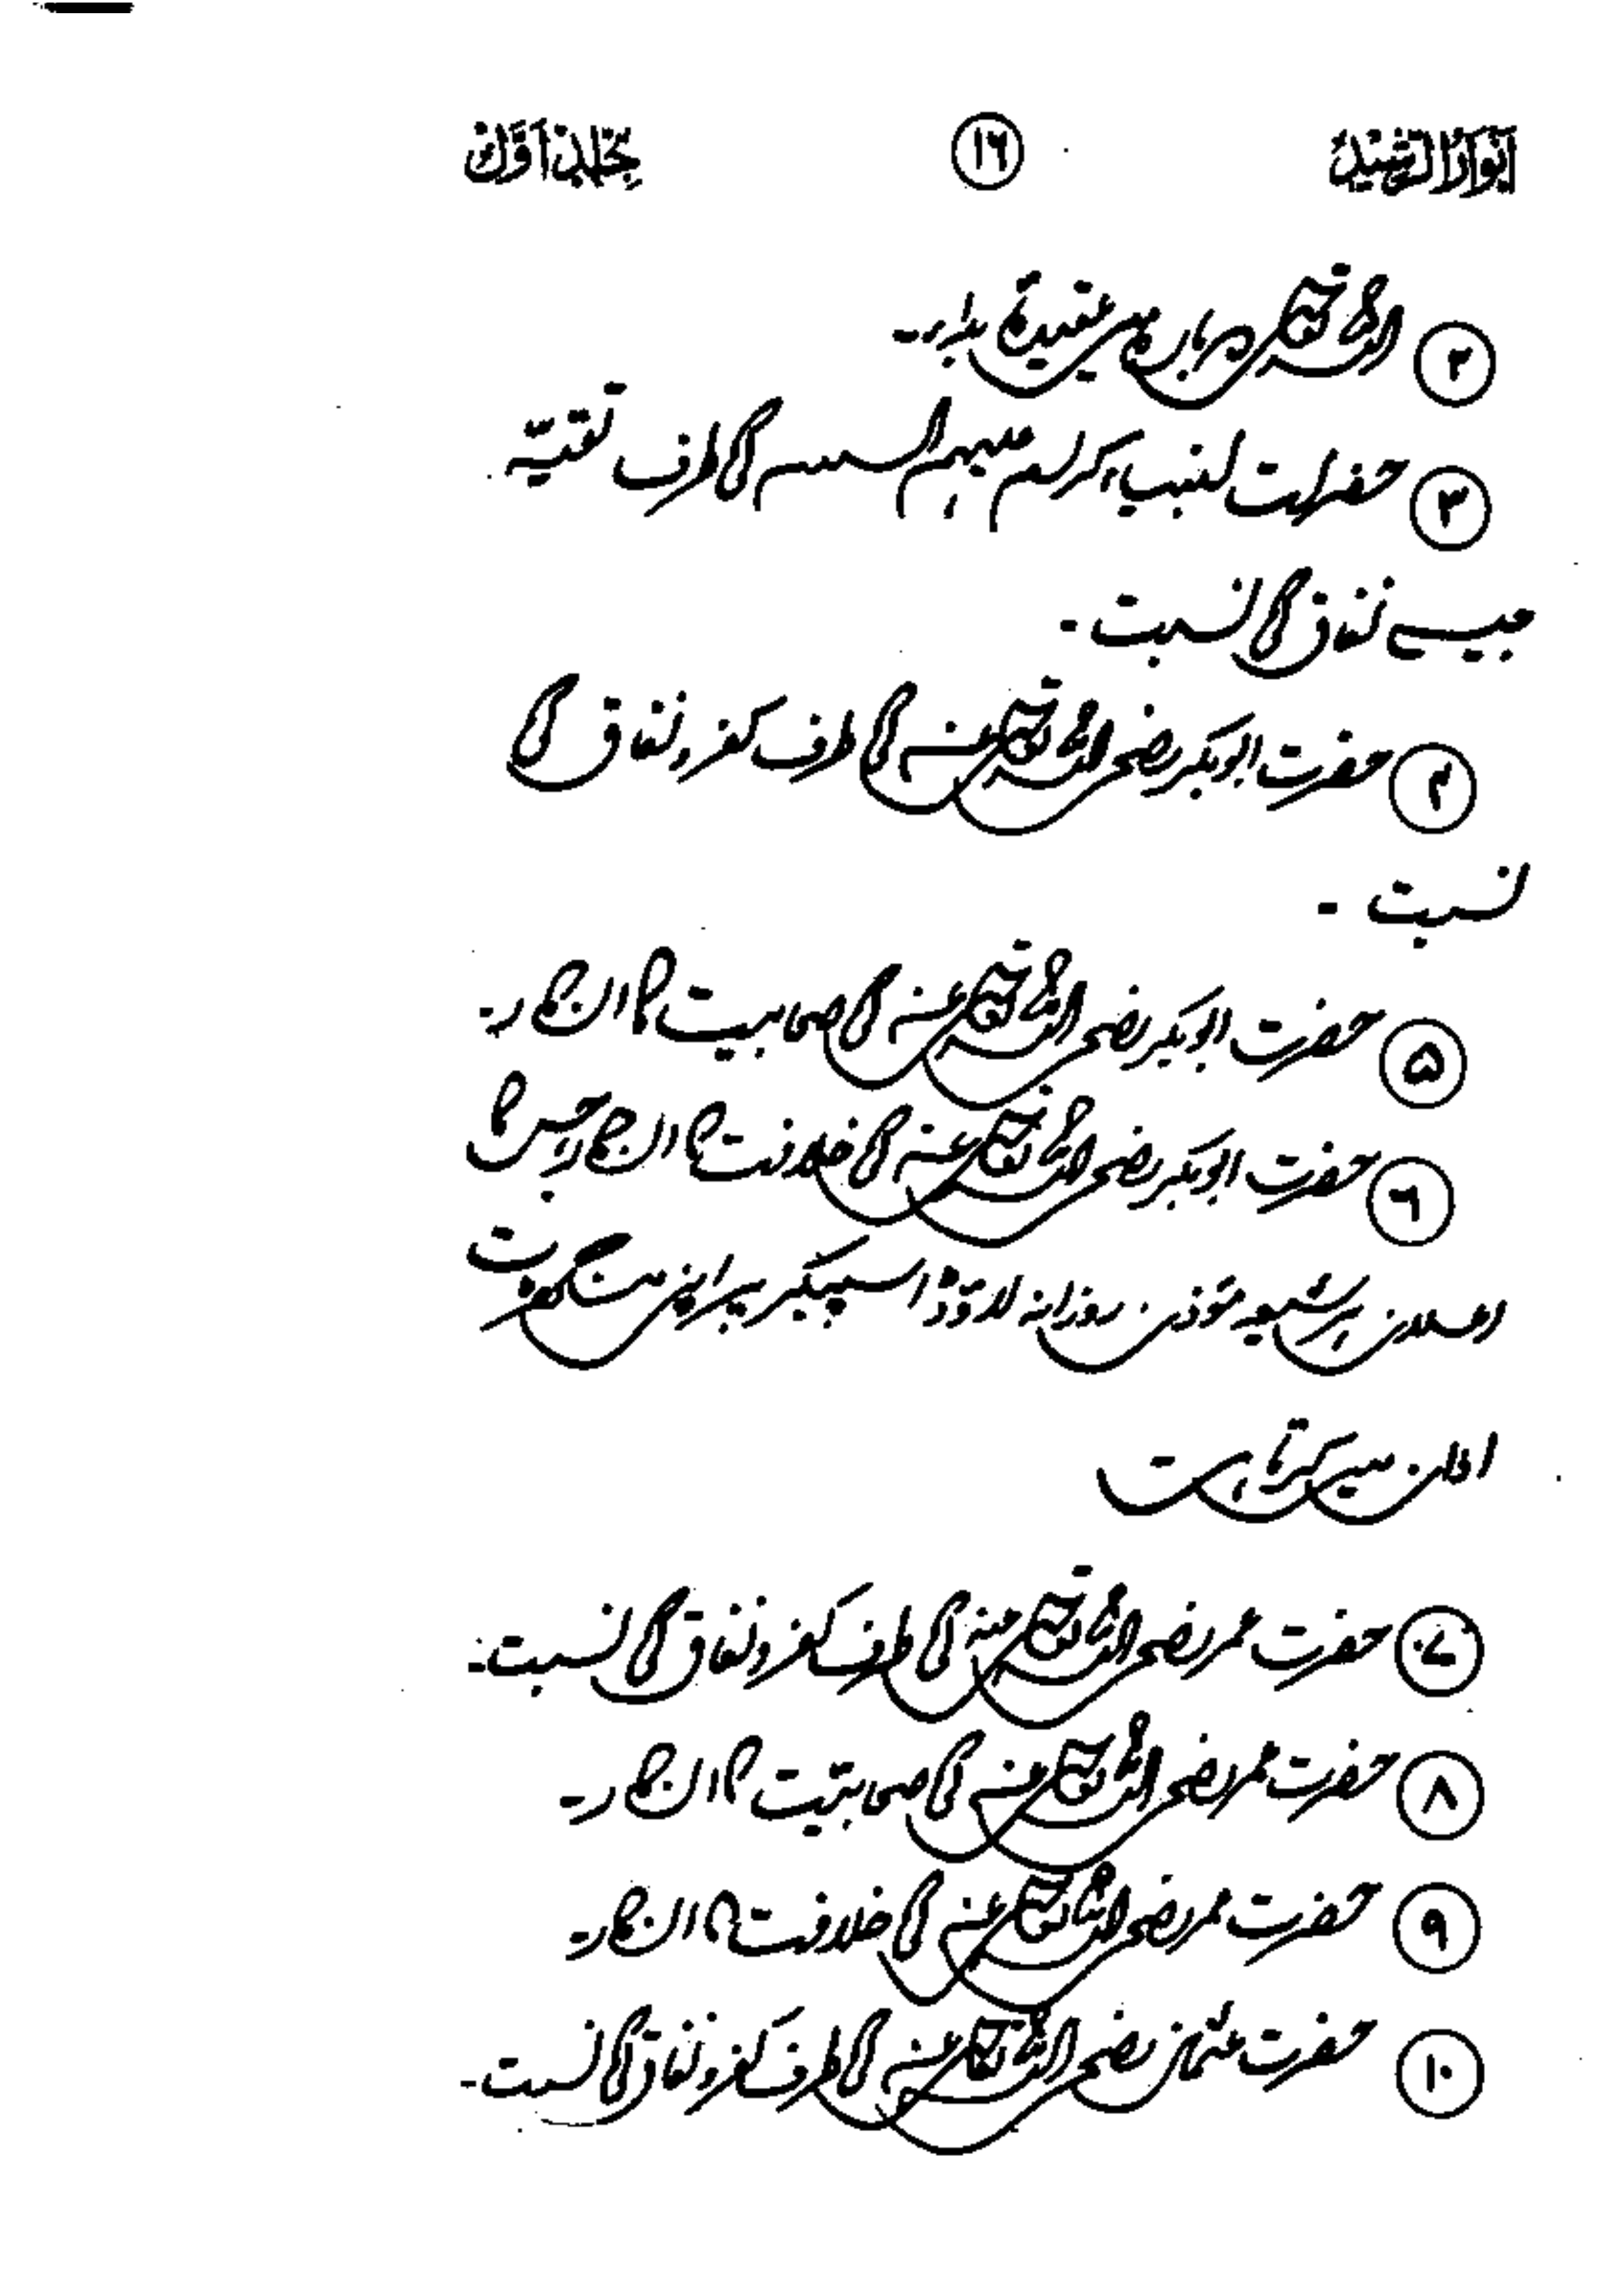 انوار الرشید ۱۶ جلد اول
۲ اللہ تعالیٰ کے بارے میں عقیدۂ بداء۔
۳ حضرات انبیاء کرام علیہم السلام کی طرف تقیہ
جیسے نفاق کی نسبت۔
۴ حضرت ابوبکر رضی اللہ تعالیٰ عنہ کی طرف کفر و نفاق کی
نسبت۔
۵ حضرت ابوبکر رضی اللہ تعالیٰ عنہ کی صحابیت کا انکار۔
۶ حضرت ابوبکر رضی اللہ تعالیٰ عنہ کی خلافت کا انکار جس کا
اعلان ہر شیعہ مؤذن روزانہ لاؤڈ اسپیکر پر اپنی منگھڑت
اذان میں کرتا ہے
۷ حضرت عمر رضی اللہ تعالیٰ عنہ کی طرف کفر و نفاق کی نسبت۔
۸ حضرت عمر رضی اللہ تعالیٰ عنہ کی صحابیت کا انکار۔
۹ حضرت عمر رضی اللہ تعالیٰ عنہ کی خلافت کا انکار۔
۱۰ حضرت عثمان رضی اللہ تعالیٰ عنہ کی طرف کفر و نفاق کی نسبت۔